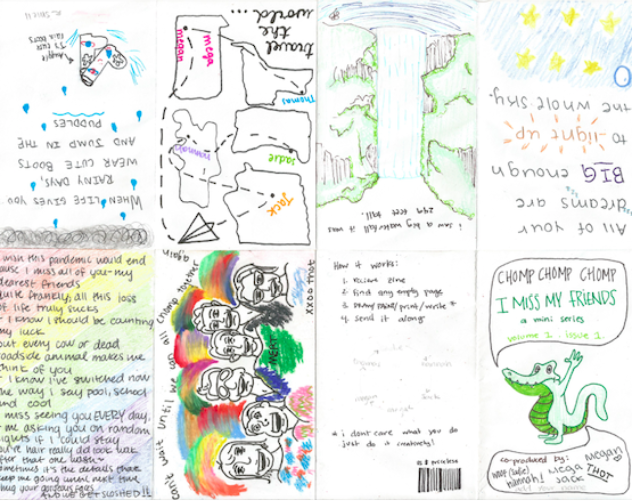 WHEN LIFE GIVES YOU
RAINY DAYS,
WEAR CUTE BOOTS
AND JUMP IN THE
PUDDLES
travel
the
world...
megan
mega
Thomas
hannah
Sadie
Jack
i saw a big waterfall it was
249 feet tall.
All of your
dreams are
BIG enough
to light up
the whole sky.
wish this pandemic would end
cause I miss all of you-my
dearest friends
quite frankly, all this loss
of life truly sucks
I know I should be counting
my luck
but every cow or dead
roadside animal makes me
think of you
I know I've switched now
the way I say pool, school
and cool
miss seeing you EVERY day,
me asking you on random
nights if I could stay
you're hair really did look
after that one wash
sometimes it's the details that
keep me going until next time
hug your gorgeous faces
can't wait until we can all chomp together
again
xoxo thot
MEGA!
How it works:
1. Recieve zine
2. Find any empty page
3. Draw/paint/print/write *
4. Send it along
* i dont care what you do
just do it creatively!
CHOMP CHOMP CHOMP
I MISS MY FRIENDS
a mini series
volume 1. issue 1.
co-produced by:
hannah! mega megan
Jack THOT